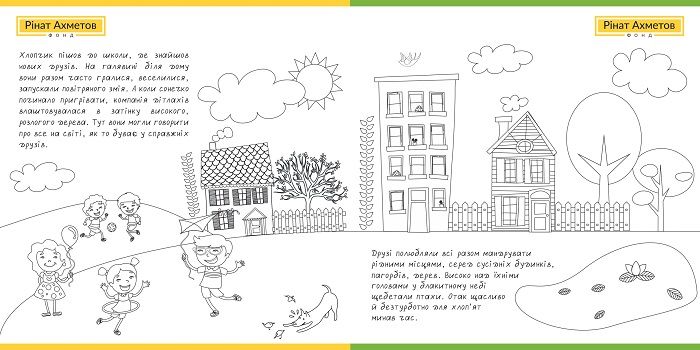 Рінат Ахметов
ФОНД
Хлопчик пішов до школи, де знайшов
нових друзів. На галявині біля дому
вони разом часто гралися, веселилися,
запускали повітряного змія. А коли сонечко
починало пригрівати, компанія дітлахів
влаштовувалася в затінку високого,
розлогого дерева. Тут вони могли говорити
про все на світі, як то буває у справжніх
друзів.
Рінат Ахметов
ФОНД
Друзі полюбляли всі разом мандрувати
рідними місцями, серед сусідніх будинків,
пагорбів, дерев. Високо над їхніми
головами у блакитному небі
щебетали птахи. Отак щасливо
й безтурботно для хлоп'ят
минав час.